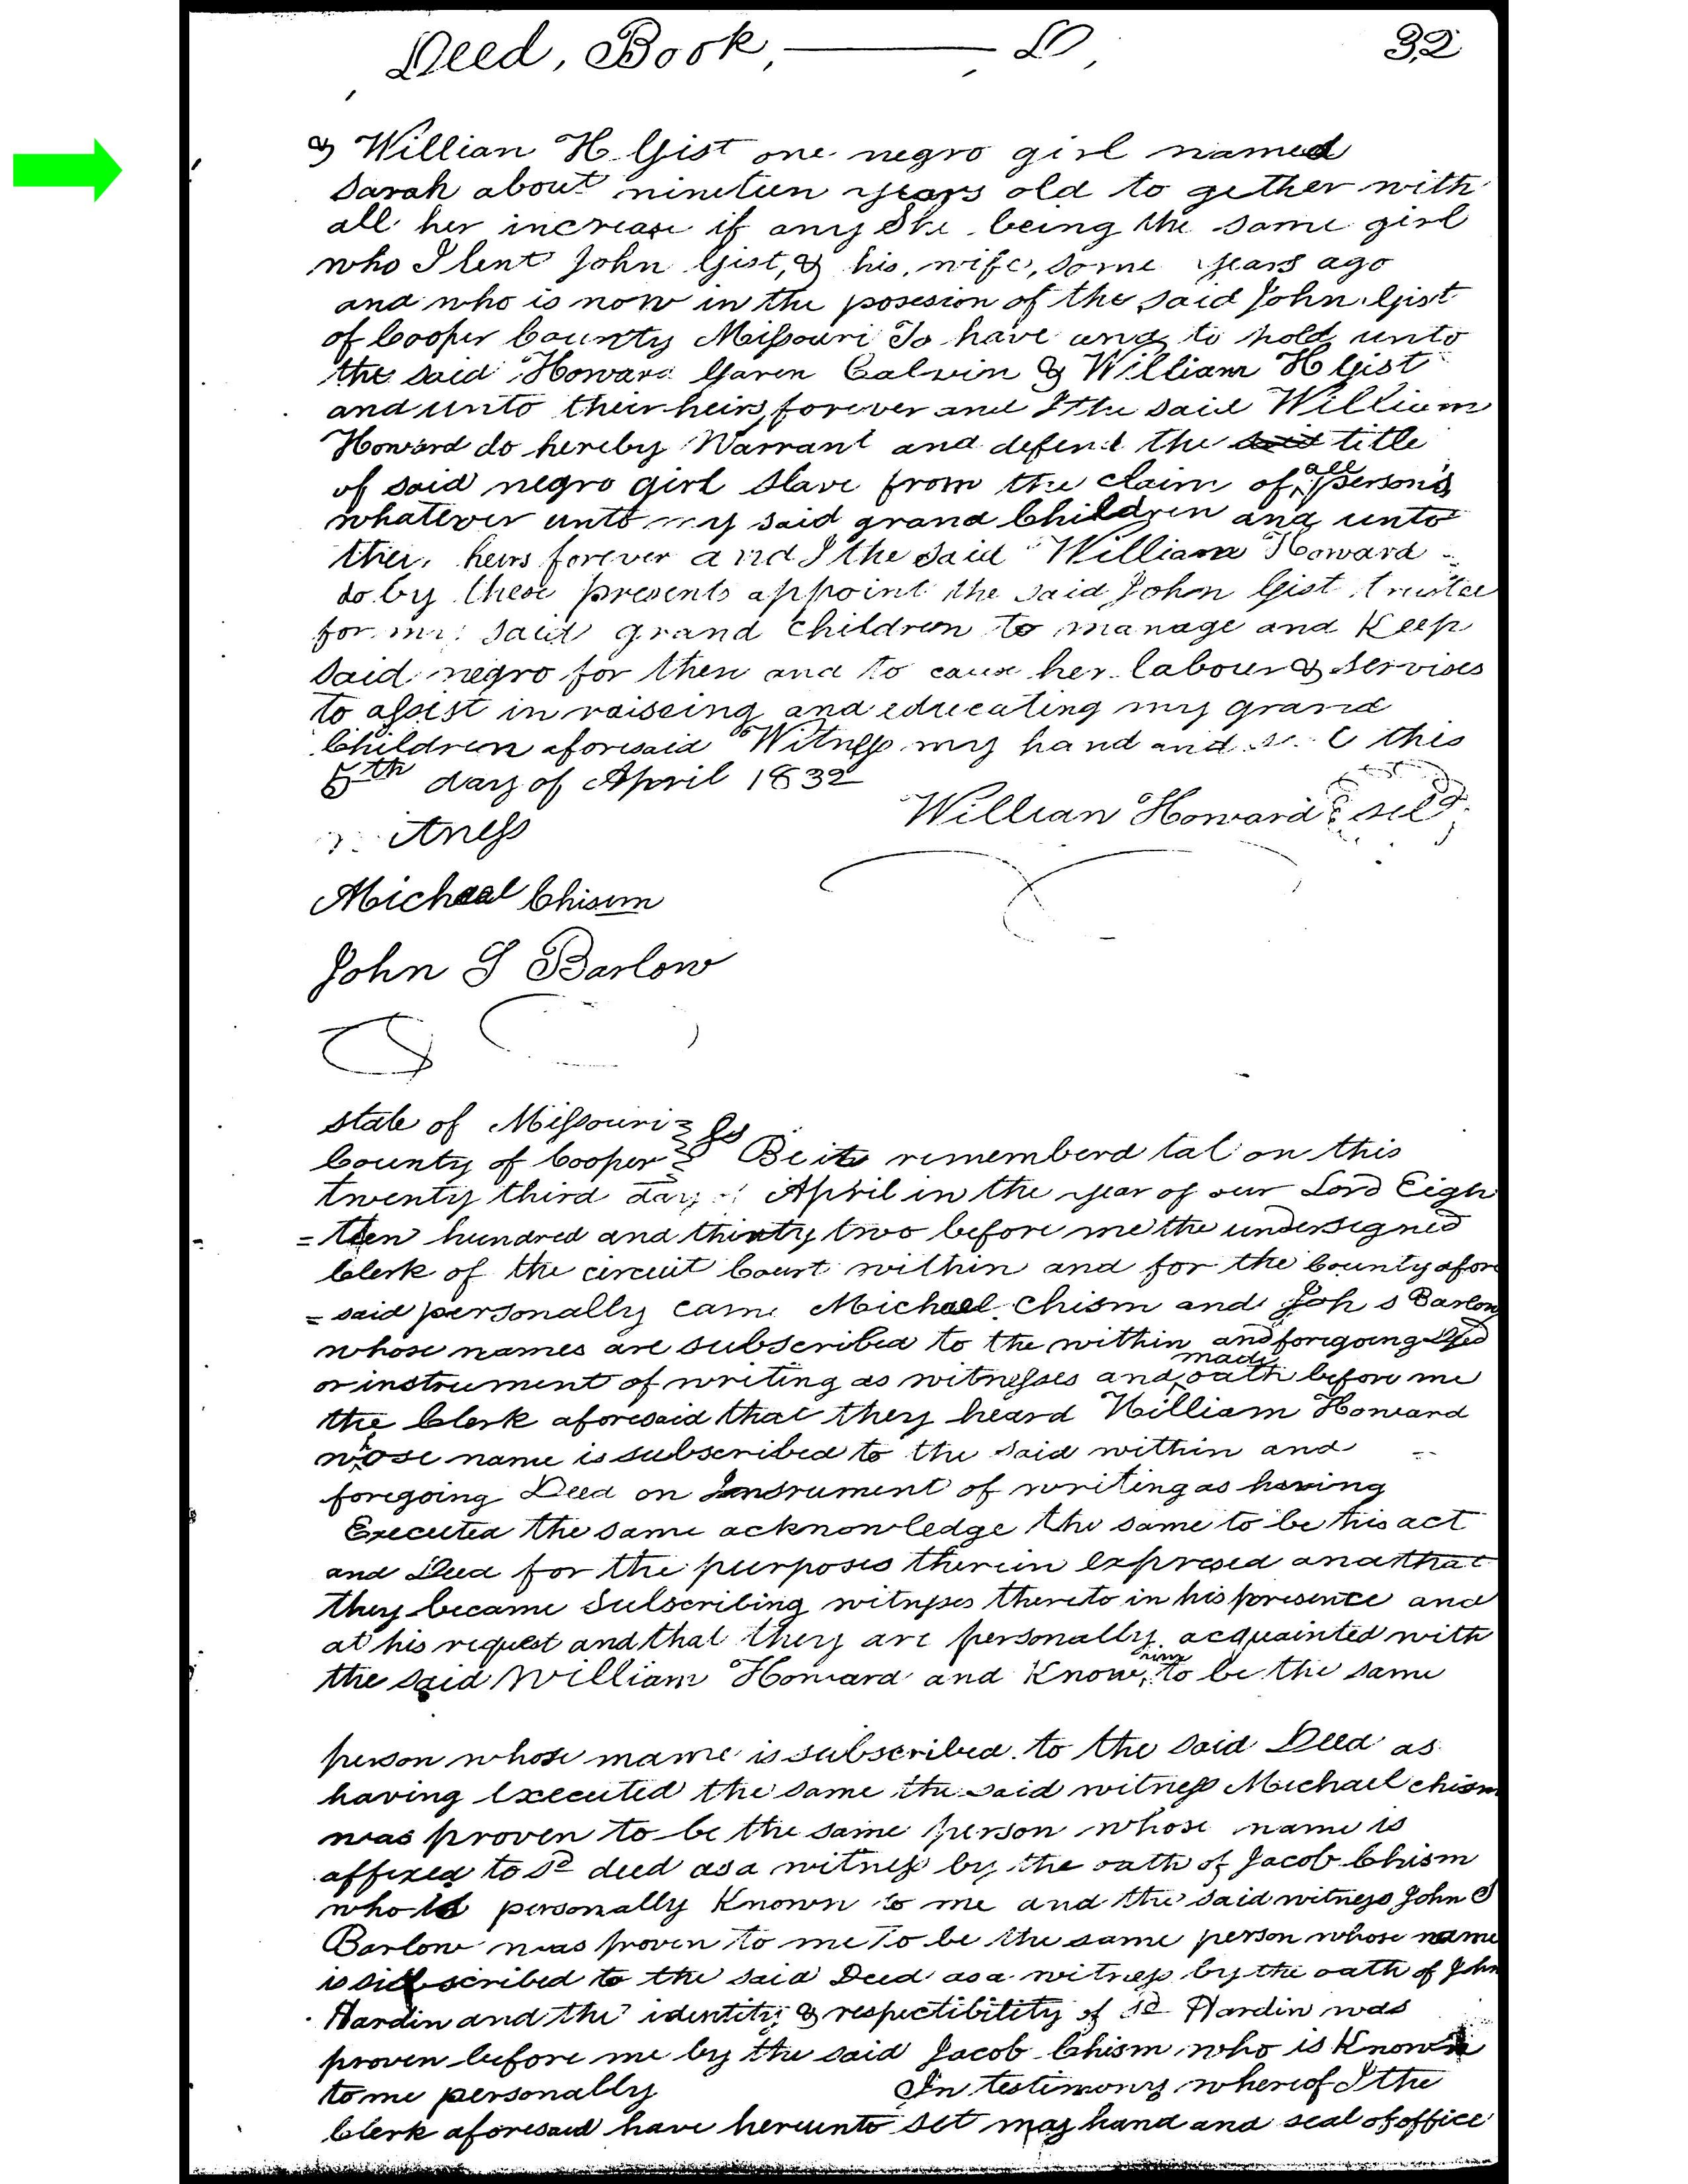 Deed, Book, ——— D, 32
& Willian H Gist one negro girl named
Sarah about ninetien years old to gether with
all her increase if any She being the same girl
who I lent John Gist, & his, wife, some years ago
and who is now in the posesion of the said John Gist
of Cooper County Missouri To have and to hold unto
the said Howard Garen Calvin & William H Gist
and unto their heirs forever and I the said William
Howard do hereby Warrant and defend the said title
of said negro girl slave from the claim of all person's
whatever unto my said grand Children and unto
thier heirs forever and I the said William Howard
do by these presents appoint the said John Gist trustee
for my said grand children to manage and Keep
said negro for then and to cause her labour & servises
to assist in raiseing and educating my grand
Children aforesaid Witness my hand and this
5th day of April 1832
Willian Howard sel
itness
Michael Chisum
John S Barlow
state of Missouri ss
County of Cooper Be it rememberd tat on this
twenty third day April in the year of our Lord Eigh
= teen hundred and thirty two before me the undersigned
Clerk of the circuit Court within and for the County afore
= said personally came Michael Chism and Joh s Barlow
whose names are subscribed to the within and foregoing Deed
or instrument of writing as witnesses and made oath before me
the Clerk aforesaid that they heard William Howard
whose name is subscribed to the said within and
foregoing Deed on Insrument of writing as having
Executed the same acknowledge the same to be his act
and Deed for the purposes therein expresed and that
they became Subscribing witnesses thereto in his presence and
at his request and that they are personally acquainted with
the said William Howard and Know him to be the same
person whose mame is subscribed to the said Deed as
having executed the same the said witness Michael chism
was proven to be the same person whose name is
affixed to sd deed as a witness by the oath of Jacob Chism
who is personally Known to me and the said witness John S
Barlow was proven to me to be the same person whose name
is subscribed to the said Deed as a witness by the oath of John
Hardin and the identity & respectibility of sd Hardin was
proven before me by the said Jacob Chism who is Known
to me personally In testimony whereof I the
Clerk aforesaid have hereunto set my hand and seal of office